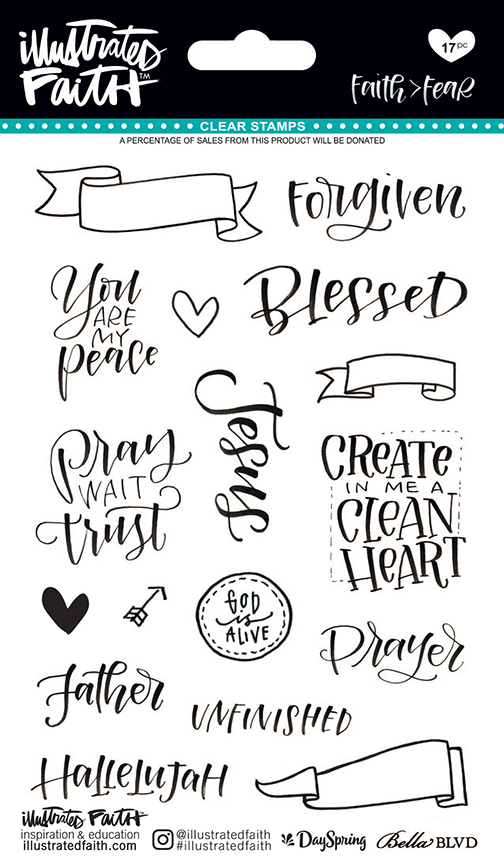 illustrated
Faith™
17pc
Faith>Fear
CLEAR STAMPS
A PERCENTAGE OF SALES FROM THIS PRODUCT WILL BE DONATED
Forgiven
You
ARE
MY
peace
Blessed
Jesus
pray
WAIT
trust
CREATE
IN ME A
CLEAN
HEART
GOD
is
ALIVE
Prayer
Father
UNFINISHED
HALLELUJAH
illustrated FAITH™
inspiration & education
illustratedfaith.com
@illustratedfaith
#illustratedfaith
DaySpring
Bella BLVD